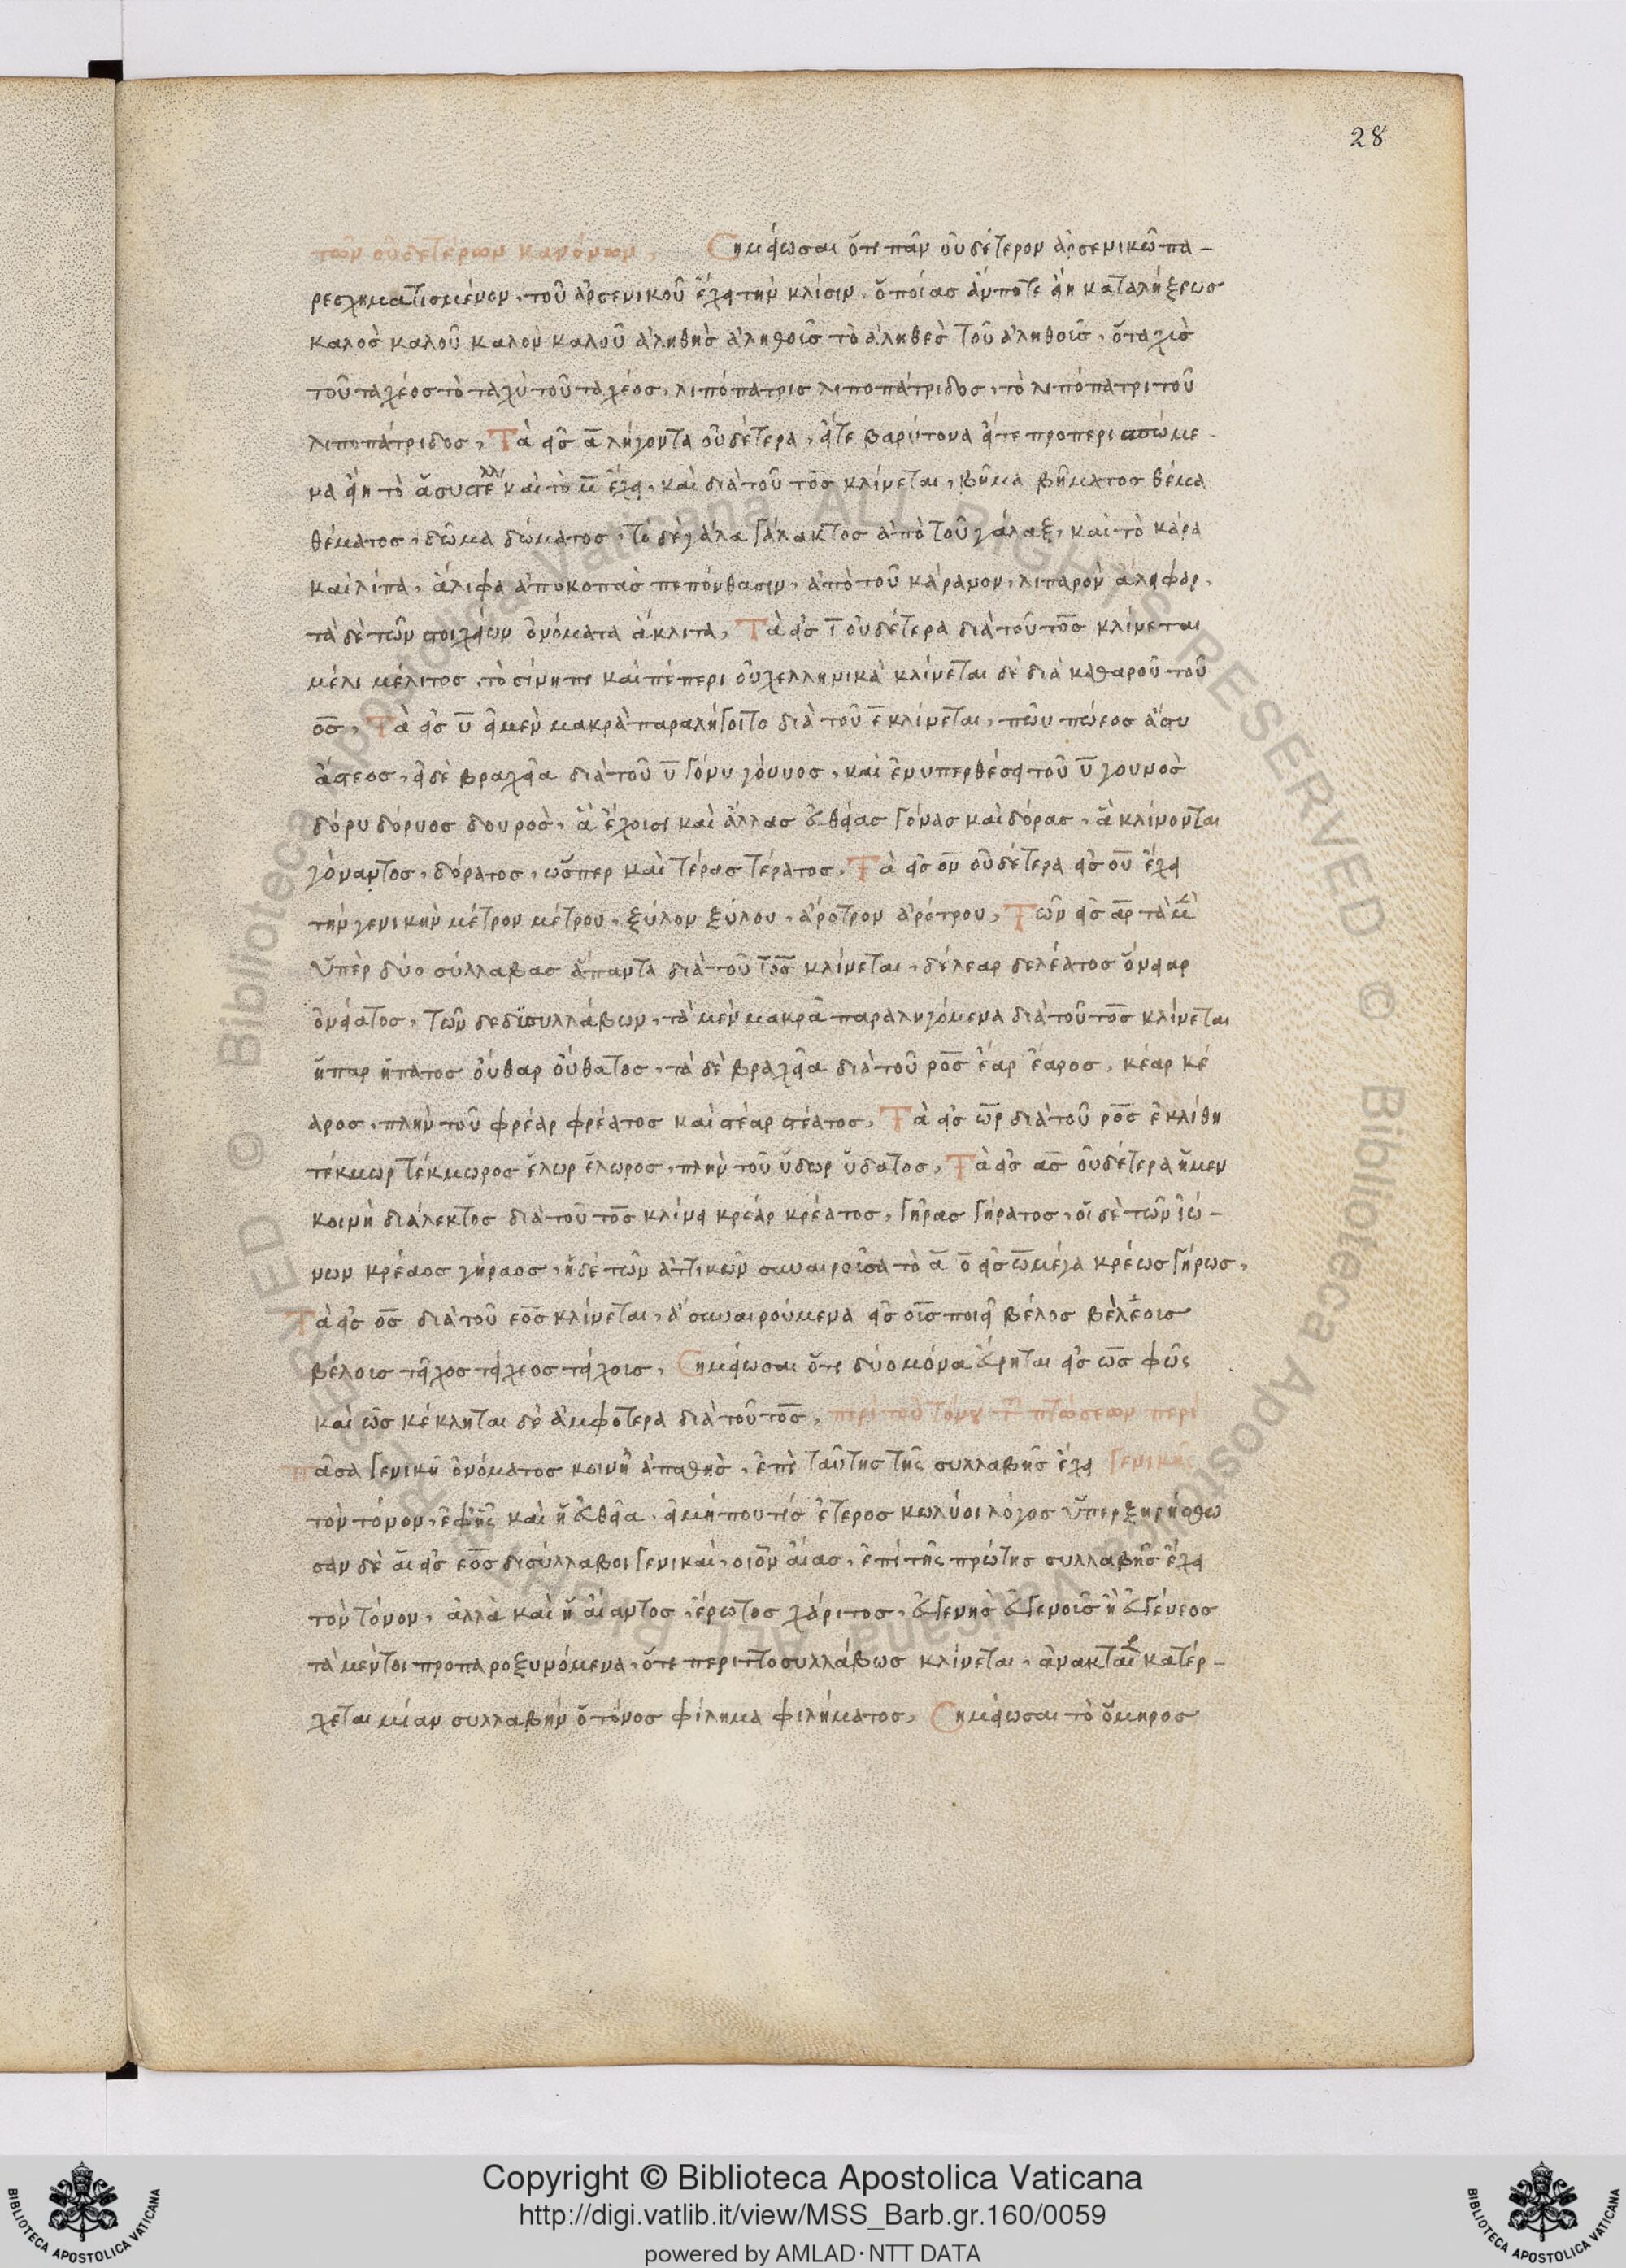 28
τῶν οὐδετέρων κανόνων, Σημείωσαι ὅτι πᾶν οὐδέτερον ἀρσενικῶ πα-
ρεσχηματισμένον, τοῦ ἀρσενικοῦ ἔχει τὴν κλίσιν, ὁποίας ἄν ποτε εἴη καταλήξεως
καλὸς καλοῦ καλὸν καλοῦ ἀληθὴς ἀληθοῦς τὸ ἀληθὲς τοῦ ἀληθοῦς, ὁ ταχὺς
τοῦ ταχέος τὸ ταχὺ τοῦ ταχέος, λιπόπατρις λιποπάτριδος, τὸ λιπόπατρι τοῦ
λιποπάτριδος, Τὰ εἰς α λήγοντα οὐδέτερα, εἴτε βαρύτονα εἴτε προπερισπώμε
να εἴη τὸ ἄσυστελ καὶ τὸ μ ἔχει, καὶ διὰ τοῦ τος κλίνεται, βῆμα βήματος θέμα
θέματος, δῶμα δώματος, τὸ δὲ γάλα γάλακτος ἀπὸ τοῦ γάλαξ, καὶ τὸ κάρα
καὶ λίπα, ἄλιφα ἀποκοπὰς πεπόνθασιν, ἀπὸ τοῦ κάρανον, λιπαρὸν ἄλειφαρ,
τὰ δὲ τῶν στοιχείων ὀνόματα ἄκλιτα, Τὰ εἰς ι οὐδέτερα διὰ τοῦ τος κλίνεται
μέλι μέλιτος, τὸ σίνηπι καὶ πέπερι οὐχ ἑλληνικὰ κλίνεται δὲ διὰ καθαροῦ τοῦ
ος, Τὰ εἰς υ εἰ μὲν μακρὰ παραλήγοιτο διὰ τοῦ ε κλίνεται, πῶυ πώεος ἄστυ
ἄστεος, εἰ δὲ βραχεῖα διὰ τοῦ υ γόνυ γόνυος, καὶ ἐν ὑπερθέσει τοῦ υ γουνὸς
δόρυ δόρυος δουρὸς, ἃ ἔχοισι καὶ ἄλλας εὐθείας γόνας καὶ δόρας, ἃ κλίνονται
γόνατος, δόρατος, ὥσπερ καὶ τέρας τέρατος, Τὰ εἰς ον οὐδέτερα εἰς ου ἔχει
τὴν γενικὴν μέτρον μέτρου, ξύλον ξύλου, ἄροτρον ἀρότρου, Τῶν εἰς αρ τὰ μ
ὑπὲρ δύο σύλλαβας ἅπαντα διὰ τοῦ τος κλίνεται, δέλεαρ δελέατος ὄνειαρ
ὀνείατος, τῶν δὲ δισυλλάβων, τὰ μὲν μακρᾶ παραληγόμενα διὰ τοῦ τος κλίνεται
ἧπαρ ἥπατος οὖθαρ οὔθατος, τὰ δὲ βραχεῖα διὰ τοῦ ρος ἔαρ ἔαρος, κέαρ κέ
αρος, πλὴν τοῦ φρέαρ φρέατος καὶ στέαρ στέατος, Τὰ εἰς ωρ διὰ τοῦ ρος ἐκλίθη
τέκμωρ τέκμωρος ἕλωρ ἕλωρος, πλὴν τοῦ ὕδωρ ὕδατος, Τὰ εἰς ας οὐδέτερα ἡ μεν
κοινὴ διάλεκτος διὰ τοῦ τος κλίνει κρέαρ κρέατος, γῆρας γήρατος, οἱ δὲ τῶν ἰώ-
νων κρέαος γήραος, ἡ δὲ τῶν ἀττικῶν συναιροῖσα τὸ α ο εἰς ω μέγα κρέως γήρως,
Τὰ εἰς ος διὰ τοῦ εος κλίνεται, ἃ συναιρούμενα εἰς οις ποιεῖ βέλος βέλεοις
βέλοις τεῖχος τείχεος τείχοις, Σημείωσαι ὅτι δύο μόνα εὕρηται εἰς ως φῶς
καὶ ὦς κέκληται δὲ ἀμφότερα διὰ τοῦ τος, περὶ τοῦ τόνου τῶν πτώσεων περὶ
Πᾶσα γενικὴ ὀνόματος κοινὴ ἀπαθὴς, ἐπὶ ταύτης τῆς συλλαβῆς ἔχει γενικῆς
τὸν τόνον, ἐφ' ἧς καὶ ἡ εὐθεῖα, εἰ μή που τίς ἕτερος κωλύοι λόγος ὑπερξηρήσθω
σαν δὲ αἱ εἰς εος δισύλλαβοι γενικαὶ, οἷον αἴας, ἐπὶ τῆς πρώτης συλλαβῆς ἔχει
τὸν τόνον, ἀλλὰ καὶ ἡ αἴαντος, ἔρωτος χάριτος, εὐγενὴς εὐγενοῖς ἢ εὐγένεος
τὰ μέντοι προπαροξυνόμενα, ὅτε περιττοσυλλάβως κλίνεται, ἄνακται κατέρ-
χεται μίαν συλλαβὴν ὁ τόνος φίλημα φιλήματος, Σημείωσαι τὸ ὅμηρος
Copyright © Biblioteca Apostolica Vaticana
http://digi.vatlib.it/view/MSS_Barb.gr.160/0059
powered by AMLAD·NTT DATA